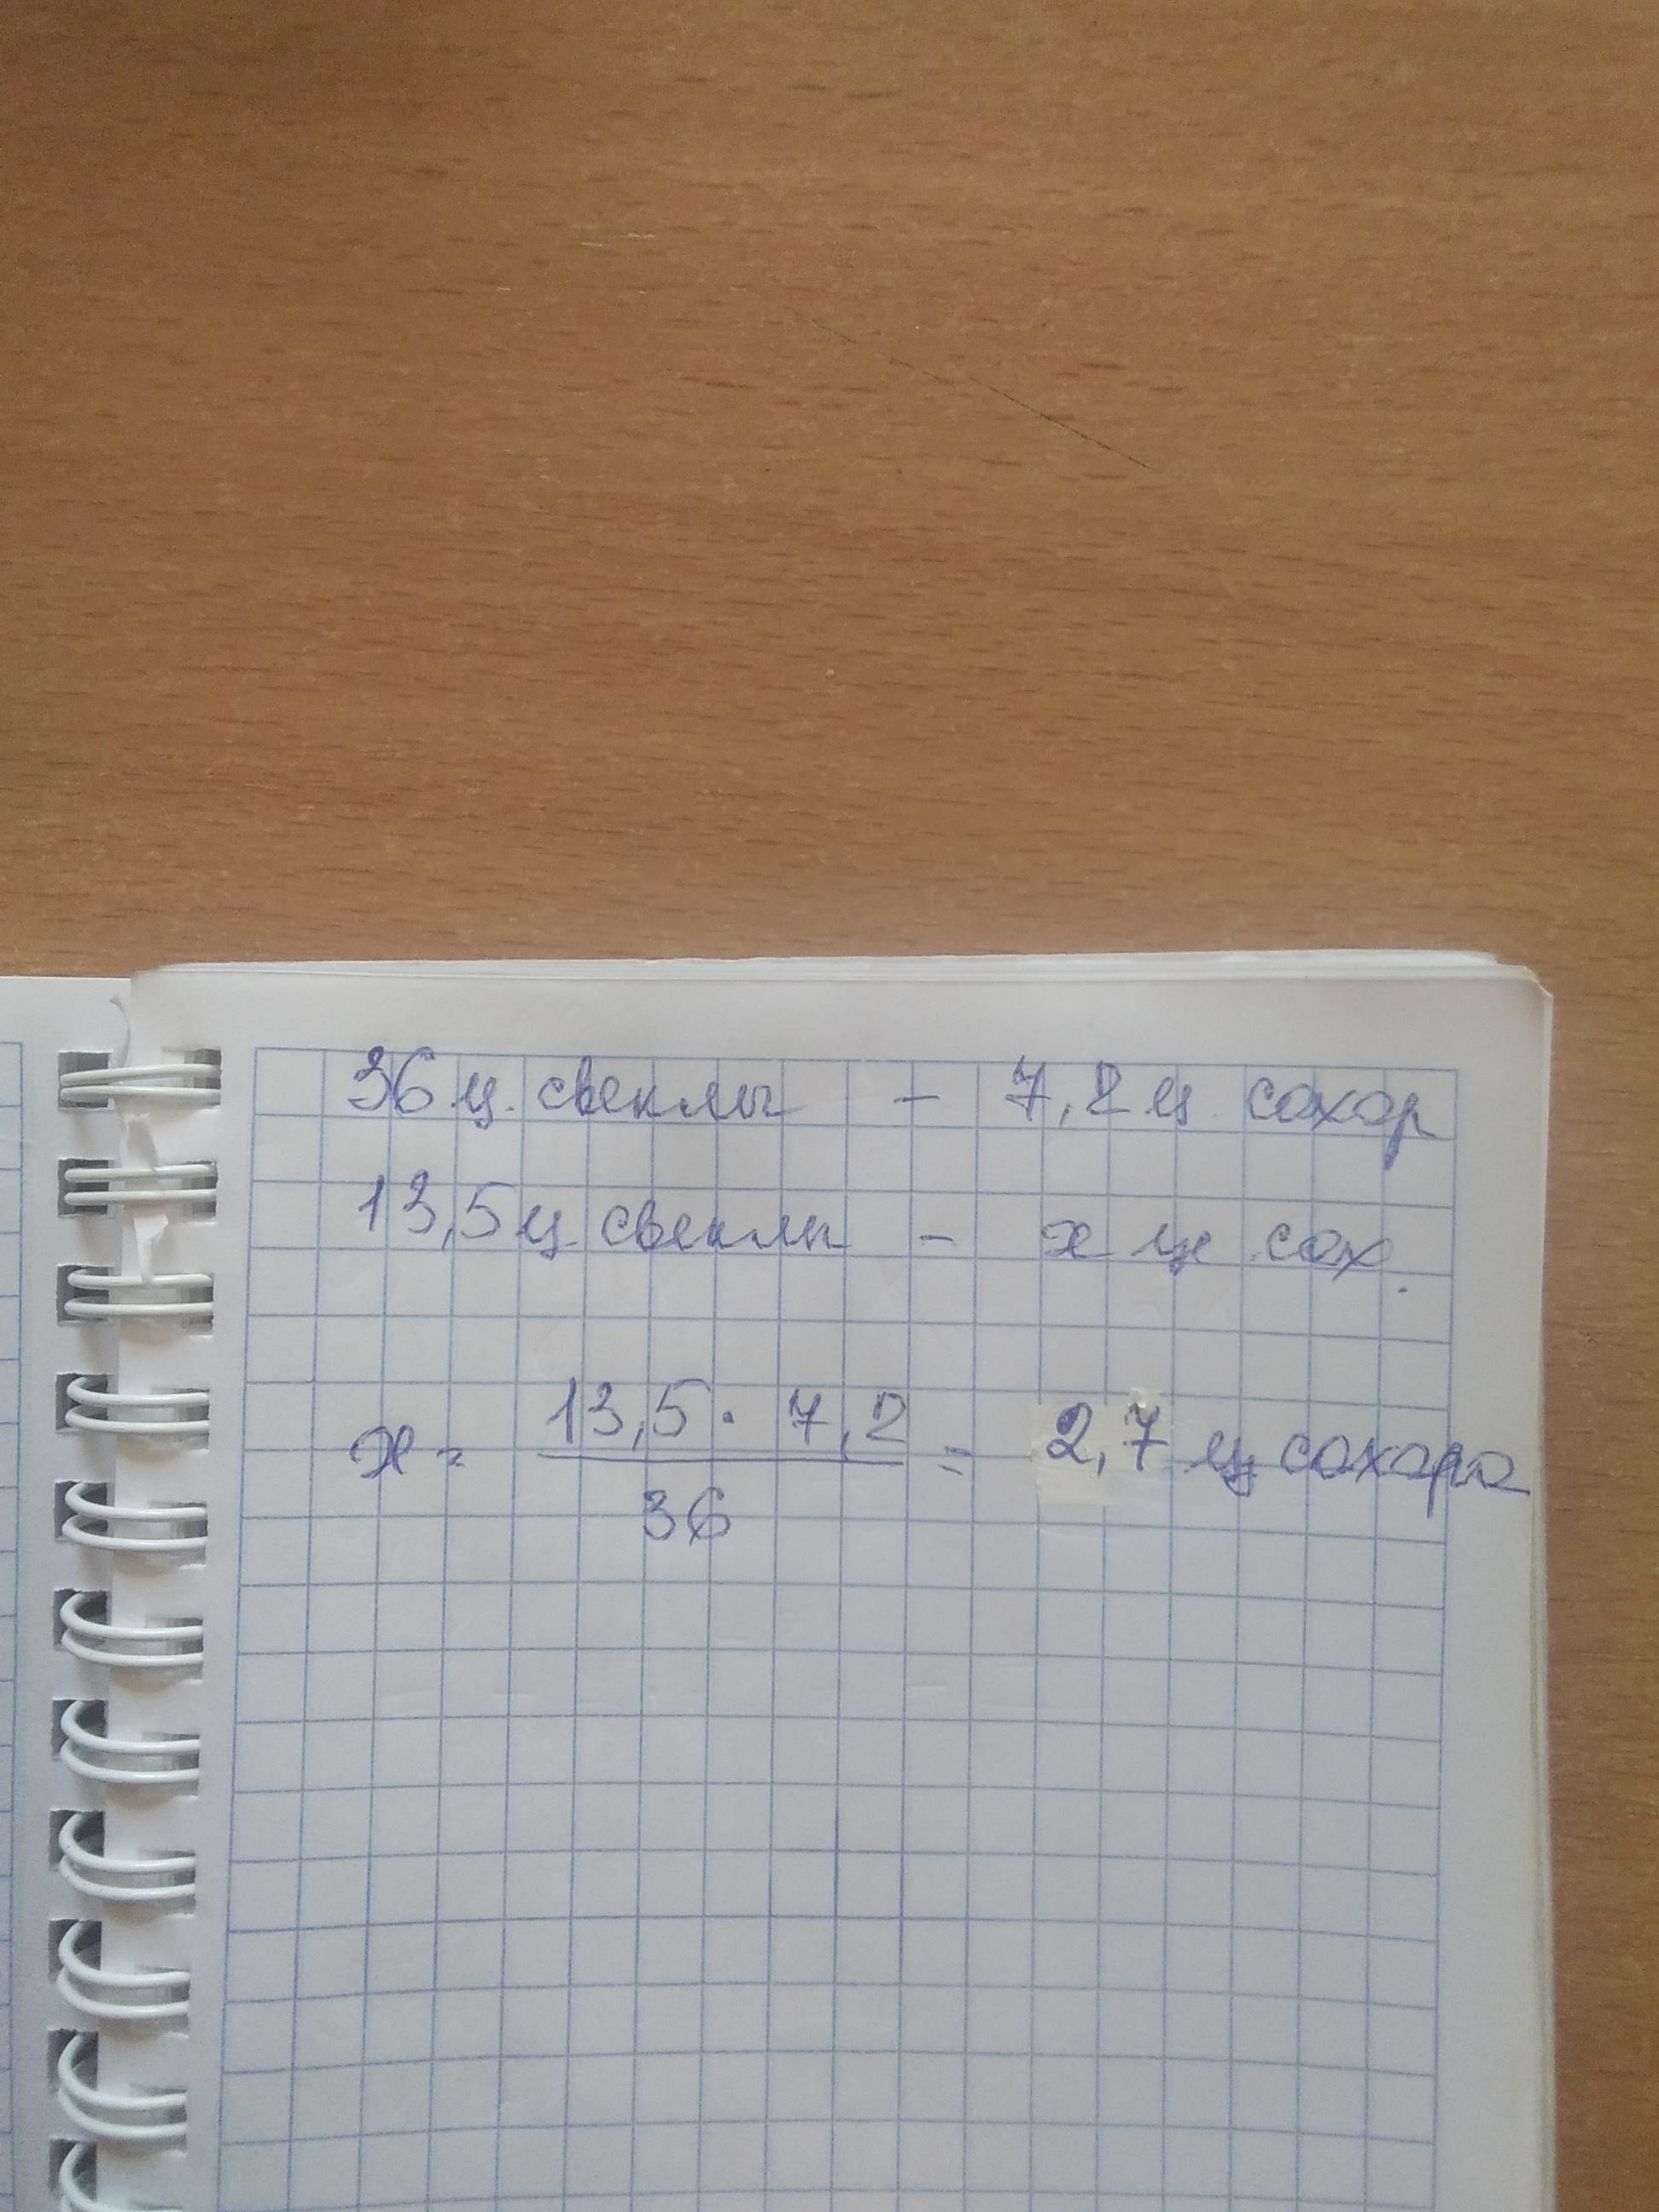 36 ц. свеклы - 7,2 ц сахар
13,5 ц свеклы - х ц сах.
х = 13,5 · 7,2 / 36 = 2,7 ц сахара